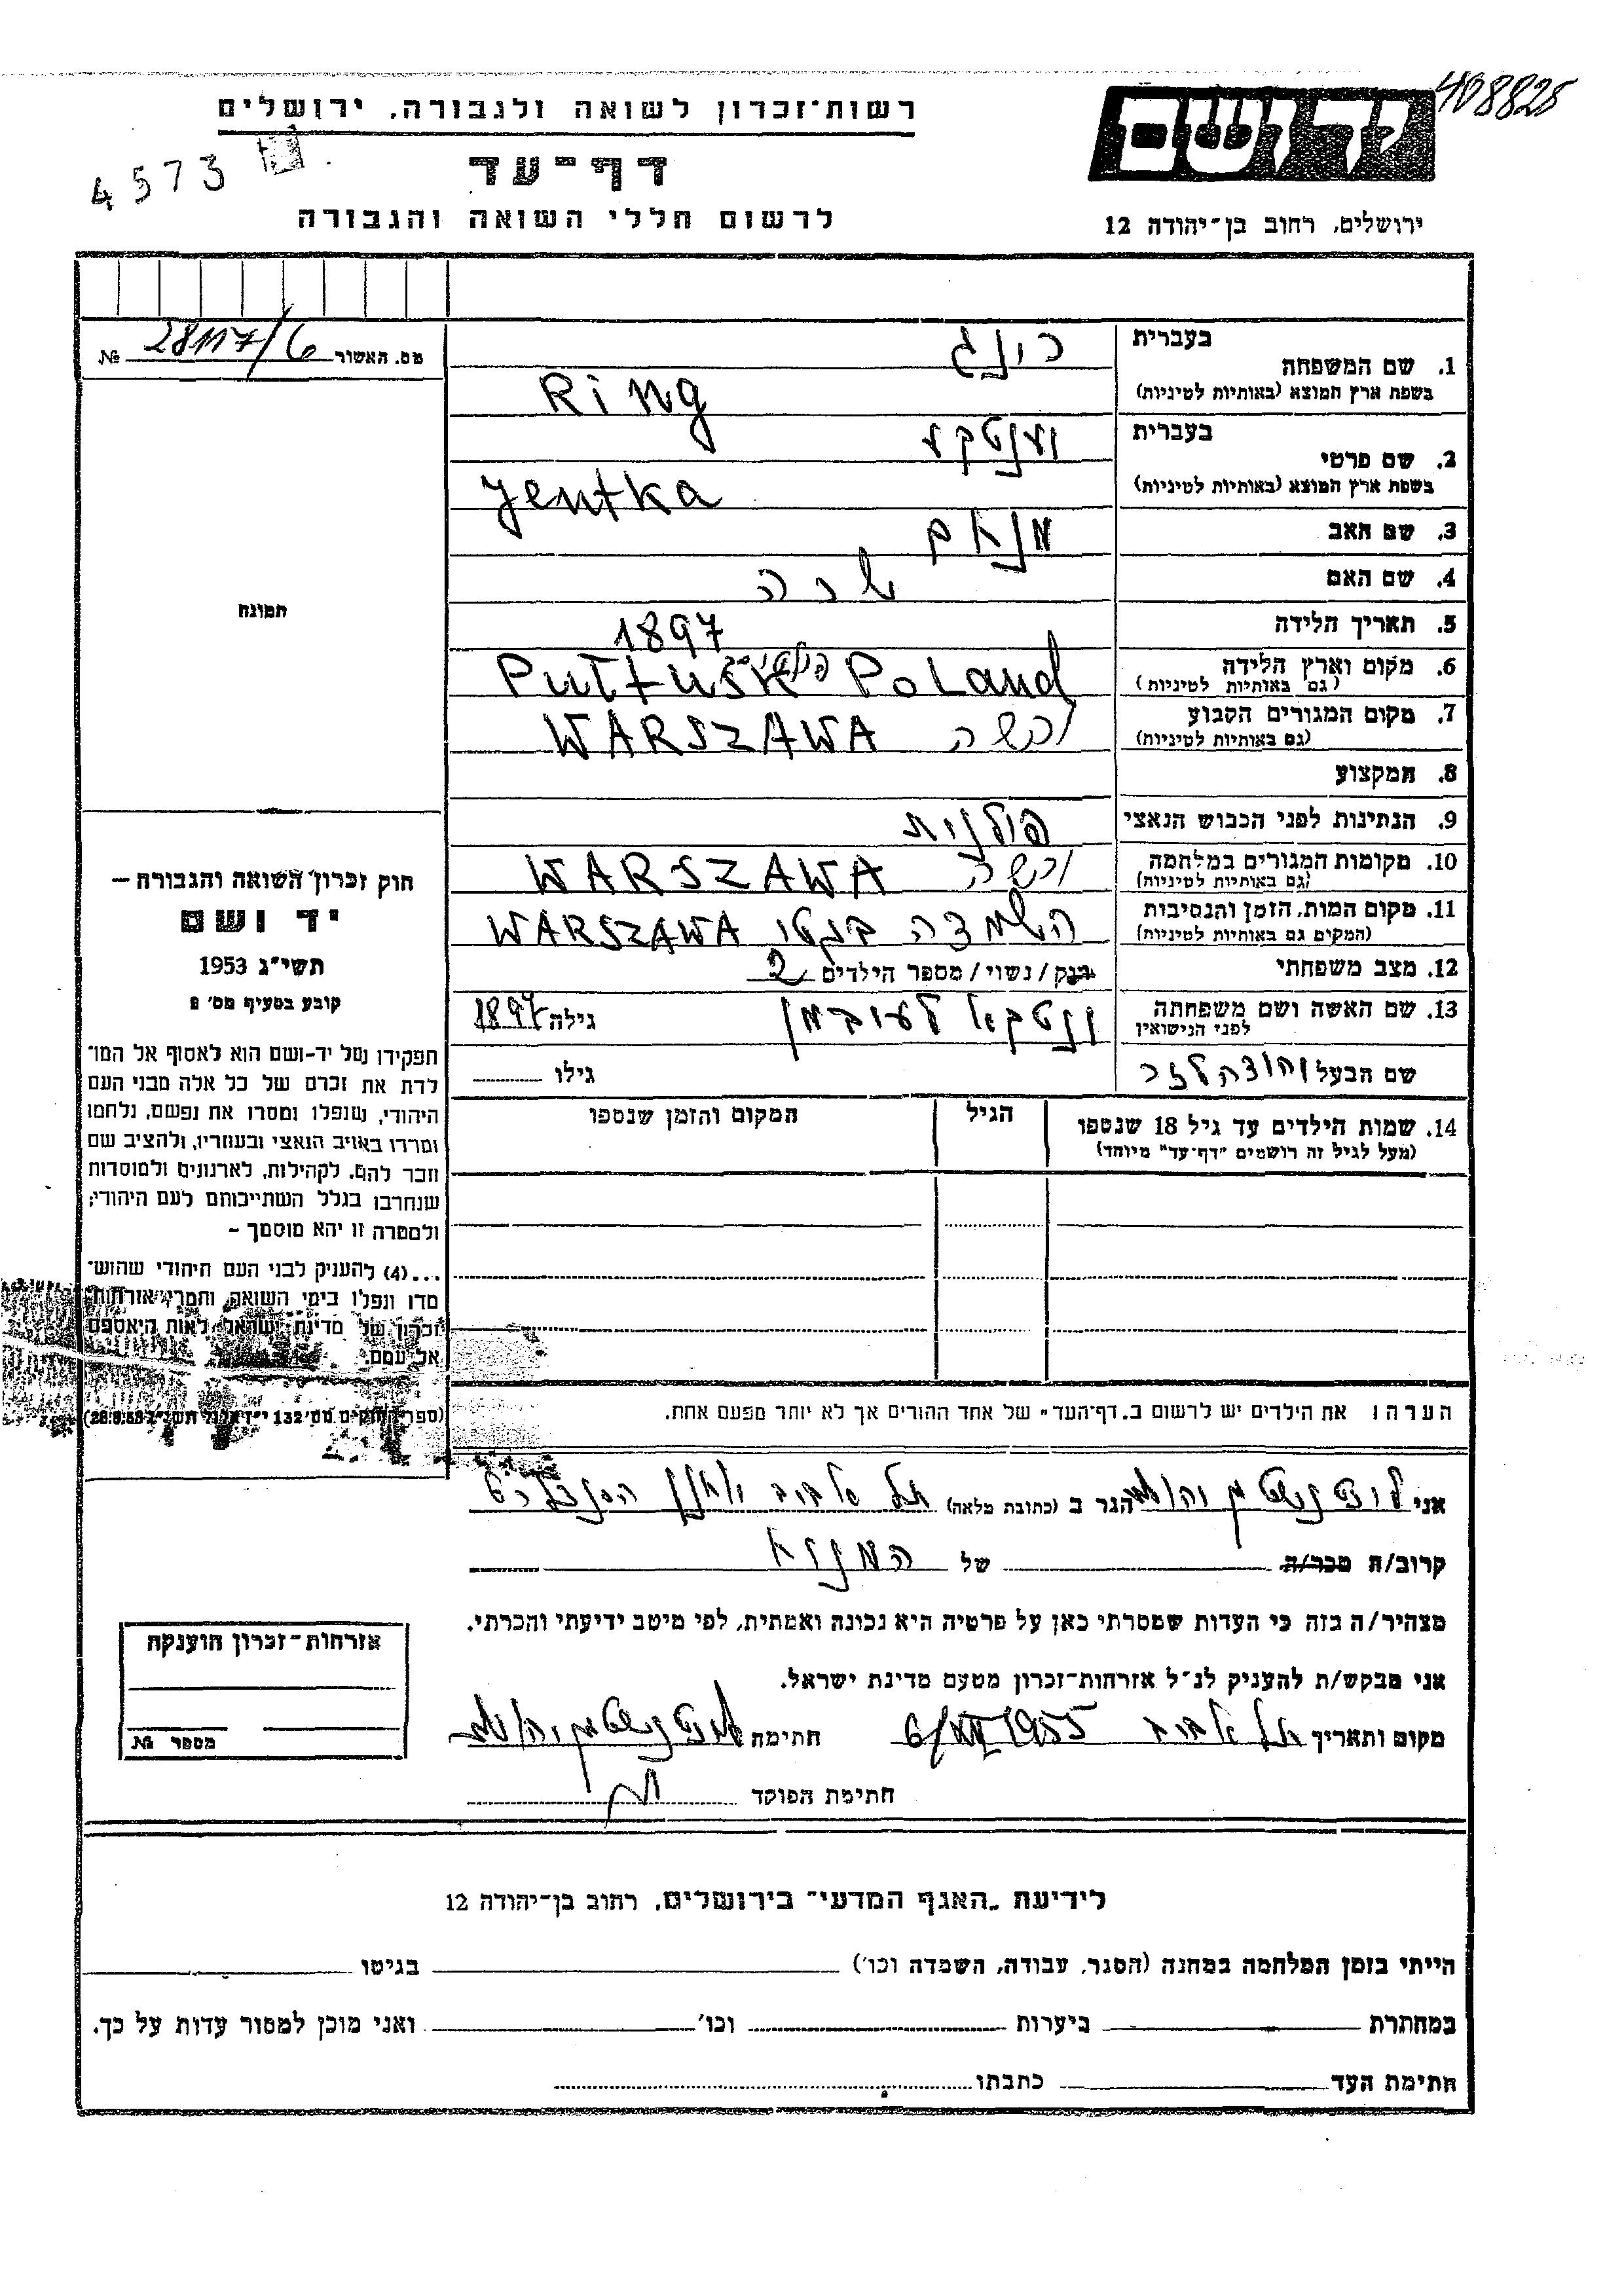 408825
רשות-זכרון לשואה ולגבורה, ירושלים
יד ושם
4573
דף-עד
לרשום חללי השואה והגבורה
ירושלים, רחוב בן-יהודה 12
מס. האשור 28117/6 №
1. שם המשפחה
בעברית רינג
בשפת ארץ המוצא (באותיות לטיניות) Ring
2. שם פרטי
בעברית יענטקע
בשפת ארץ המוצא (באותיות לטיניות) Jentka
3. שם האב מנחם
4. שם האם שרה
5. תאריך הלידה 1897
6. מקום וארץ הלידה Pułtusk Poland
(גם באותיות לטיניות)
7. מקום המגורים הקבוע ורשה WARSZAWA
(גם באותיות לטיניות)
8. המקצוע
9. הנתינות לפני הכבוש הנאצי פולנית
10. מקומות המגורים במלחמה ורשה WARSZAWA
(גם באותיות לטיניות)
11. מקום המות, הזמן והנסיבות השמדה בגטו WARSZAWA
(המקום גם באותיות לטיניות)
12. מצב משפחתי רנק/נשוי/מספר הילדים 2
13. שם האשה ושם משפחתה
לפני הנישואין
גילה 1897
שם הבעל גילו
14. שמות הילדים עד גיל 18 שנספו
(מעל לגיל זה רושמים "דף-עד" מיוחד)
הגיל
המקום והזמן שנספו
הערה: את הילדים יש לרשום ב„דף-העד" של אחד ההורים אך לא יותר מפעם אחת.
תמונה
חוק זכרון השואה והגבורה —
יד ושם
תשי"ג 1953
קובע בסעיף מס׳ 2
תפקידו של יד-ושם הוא לאסוף אל המו־
לדת את זכרם של כל אלה מבני העם
היהודי, שנפלו ומסרו את נפשם, נלחמו
ומרדו באויב הנאצי ובעוזריו, ולהציב שם
וזכר להם, לקהילות, לארגונים ולמוסדות
שנחרבו בגלל השתייכותם לעם היהודי;
ולמטרה זו יהא מוסמך —
...(4) להעניק לבני העם היהודי שהוש־
מדו ונפלו בימי השואה והמרי אזרחות־
זכרון של מדינת ישראל לאות היאספם
אל עמם.
אני הגר ב (כתובת מלאה) תל אביב
קרוב/ה מכר/ה של
מצהיר/ה בזה כי העדות שמסרתי כאן על פרטיה היא נכונה ואמתית, לפי מיטב ידיעתי והכרתי.
אני מבקש/ת להעניק לנ"ל אזרחות-זכרון מטעם מדינת ישראל.
מקום ותאריך תל אביב חתימה
חתימת הפוקד
אזרחות-זכרון הוענקה
מספר №
לידיעת „האגף המדעי" בירושלים, רחוב בן-יהודה 12
הייתי בזמן המלחמה במחנה (הסגר, עבודה, השמדה וכו׳) בגיטו
במחתרת ביערות וכו׳ ואני מוכן למסור עדות על כך.
חתימת העד כתבתו